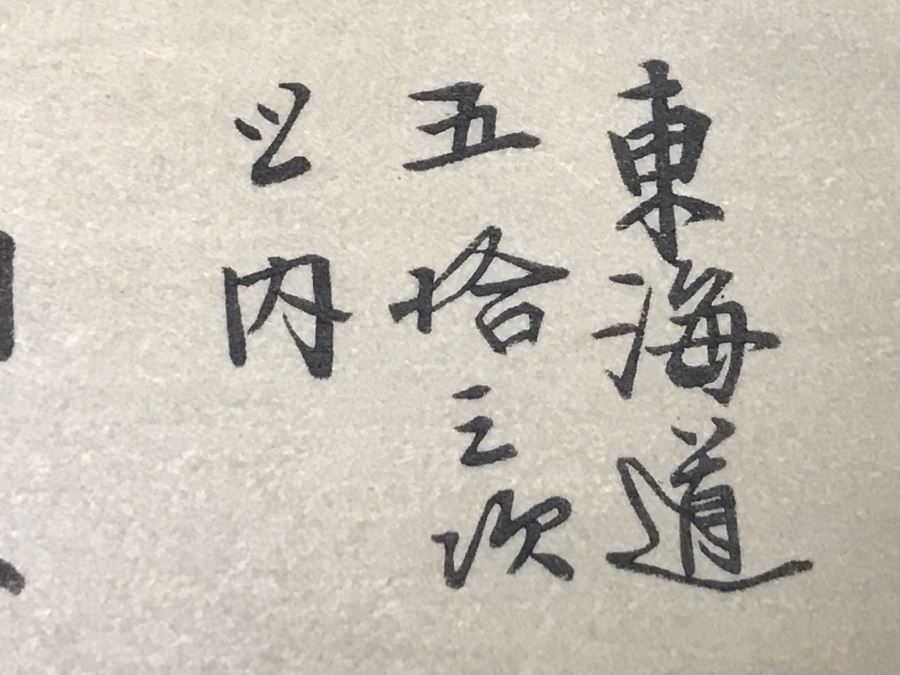 東海道
五拾三次
之内